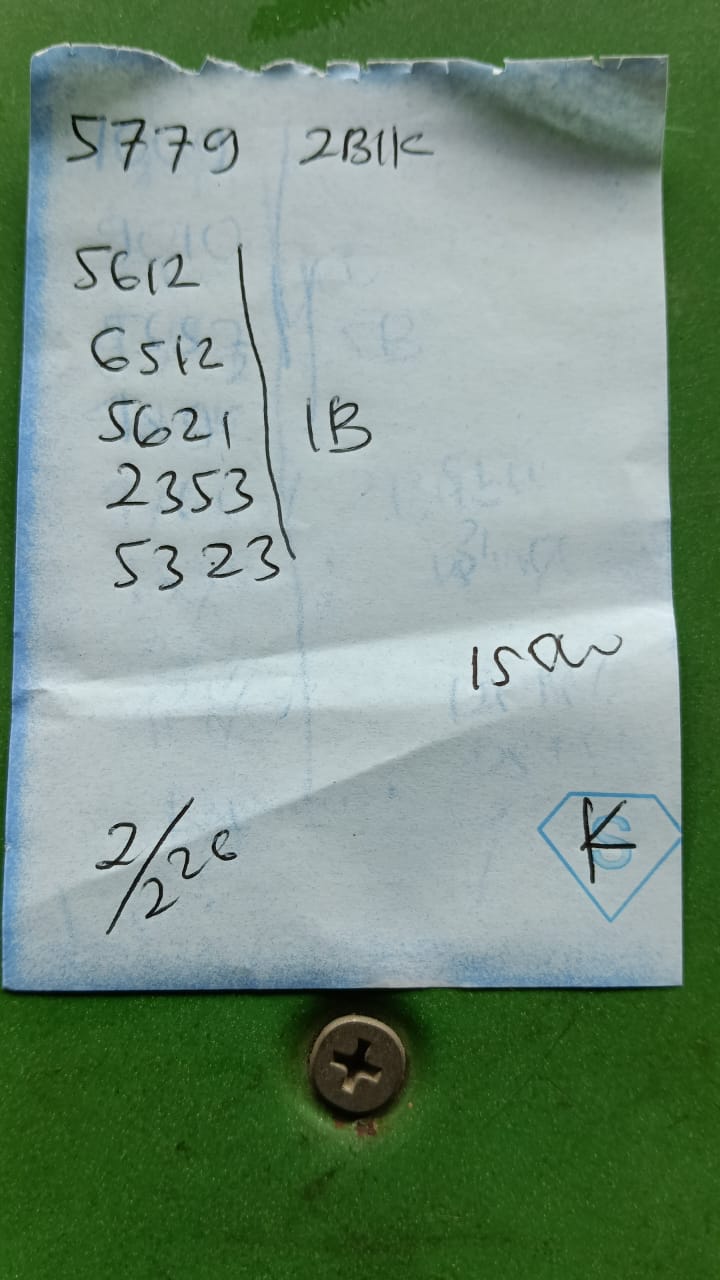 5779 2B1K
5612
6512
5621 1B
2353
5323
2/2 26
K
S